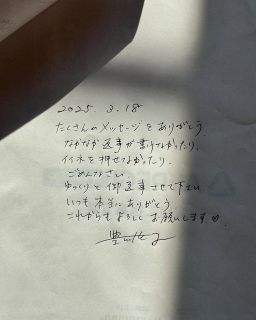 2025. 3. 18
たくさんのメッセージをありがとう
なかなか返事が書けなかったり、
イイネを押せなかったり、
ごめんなさい
ゆっくりと御返事させて下さい
いつも本当にありがとう
これからもよろしくお願いします♡.